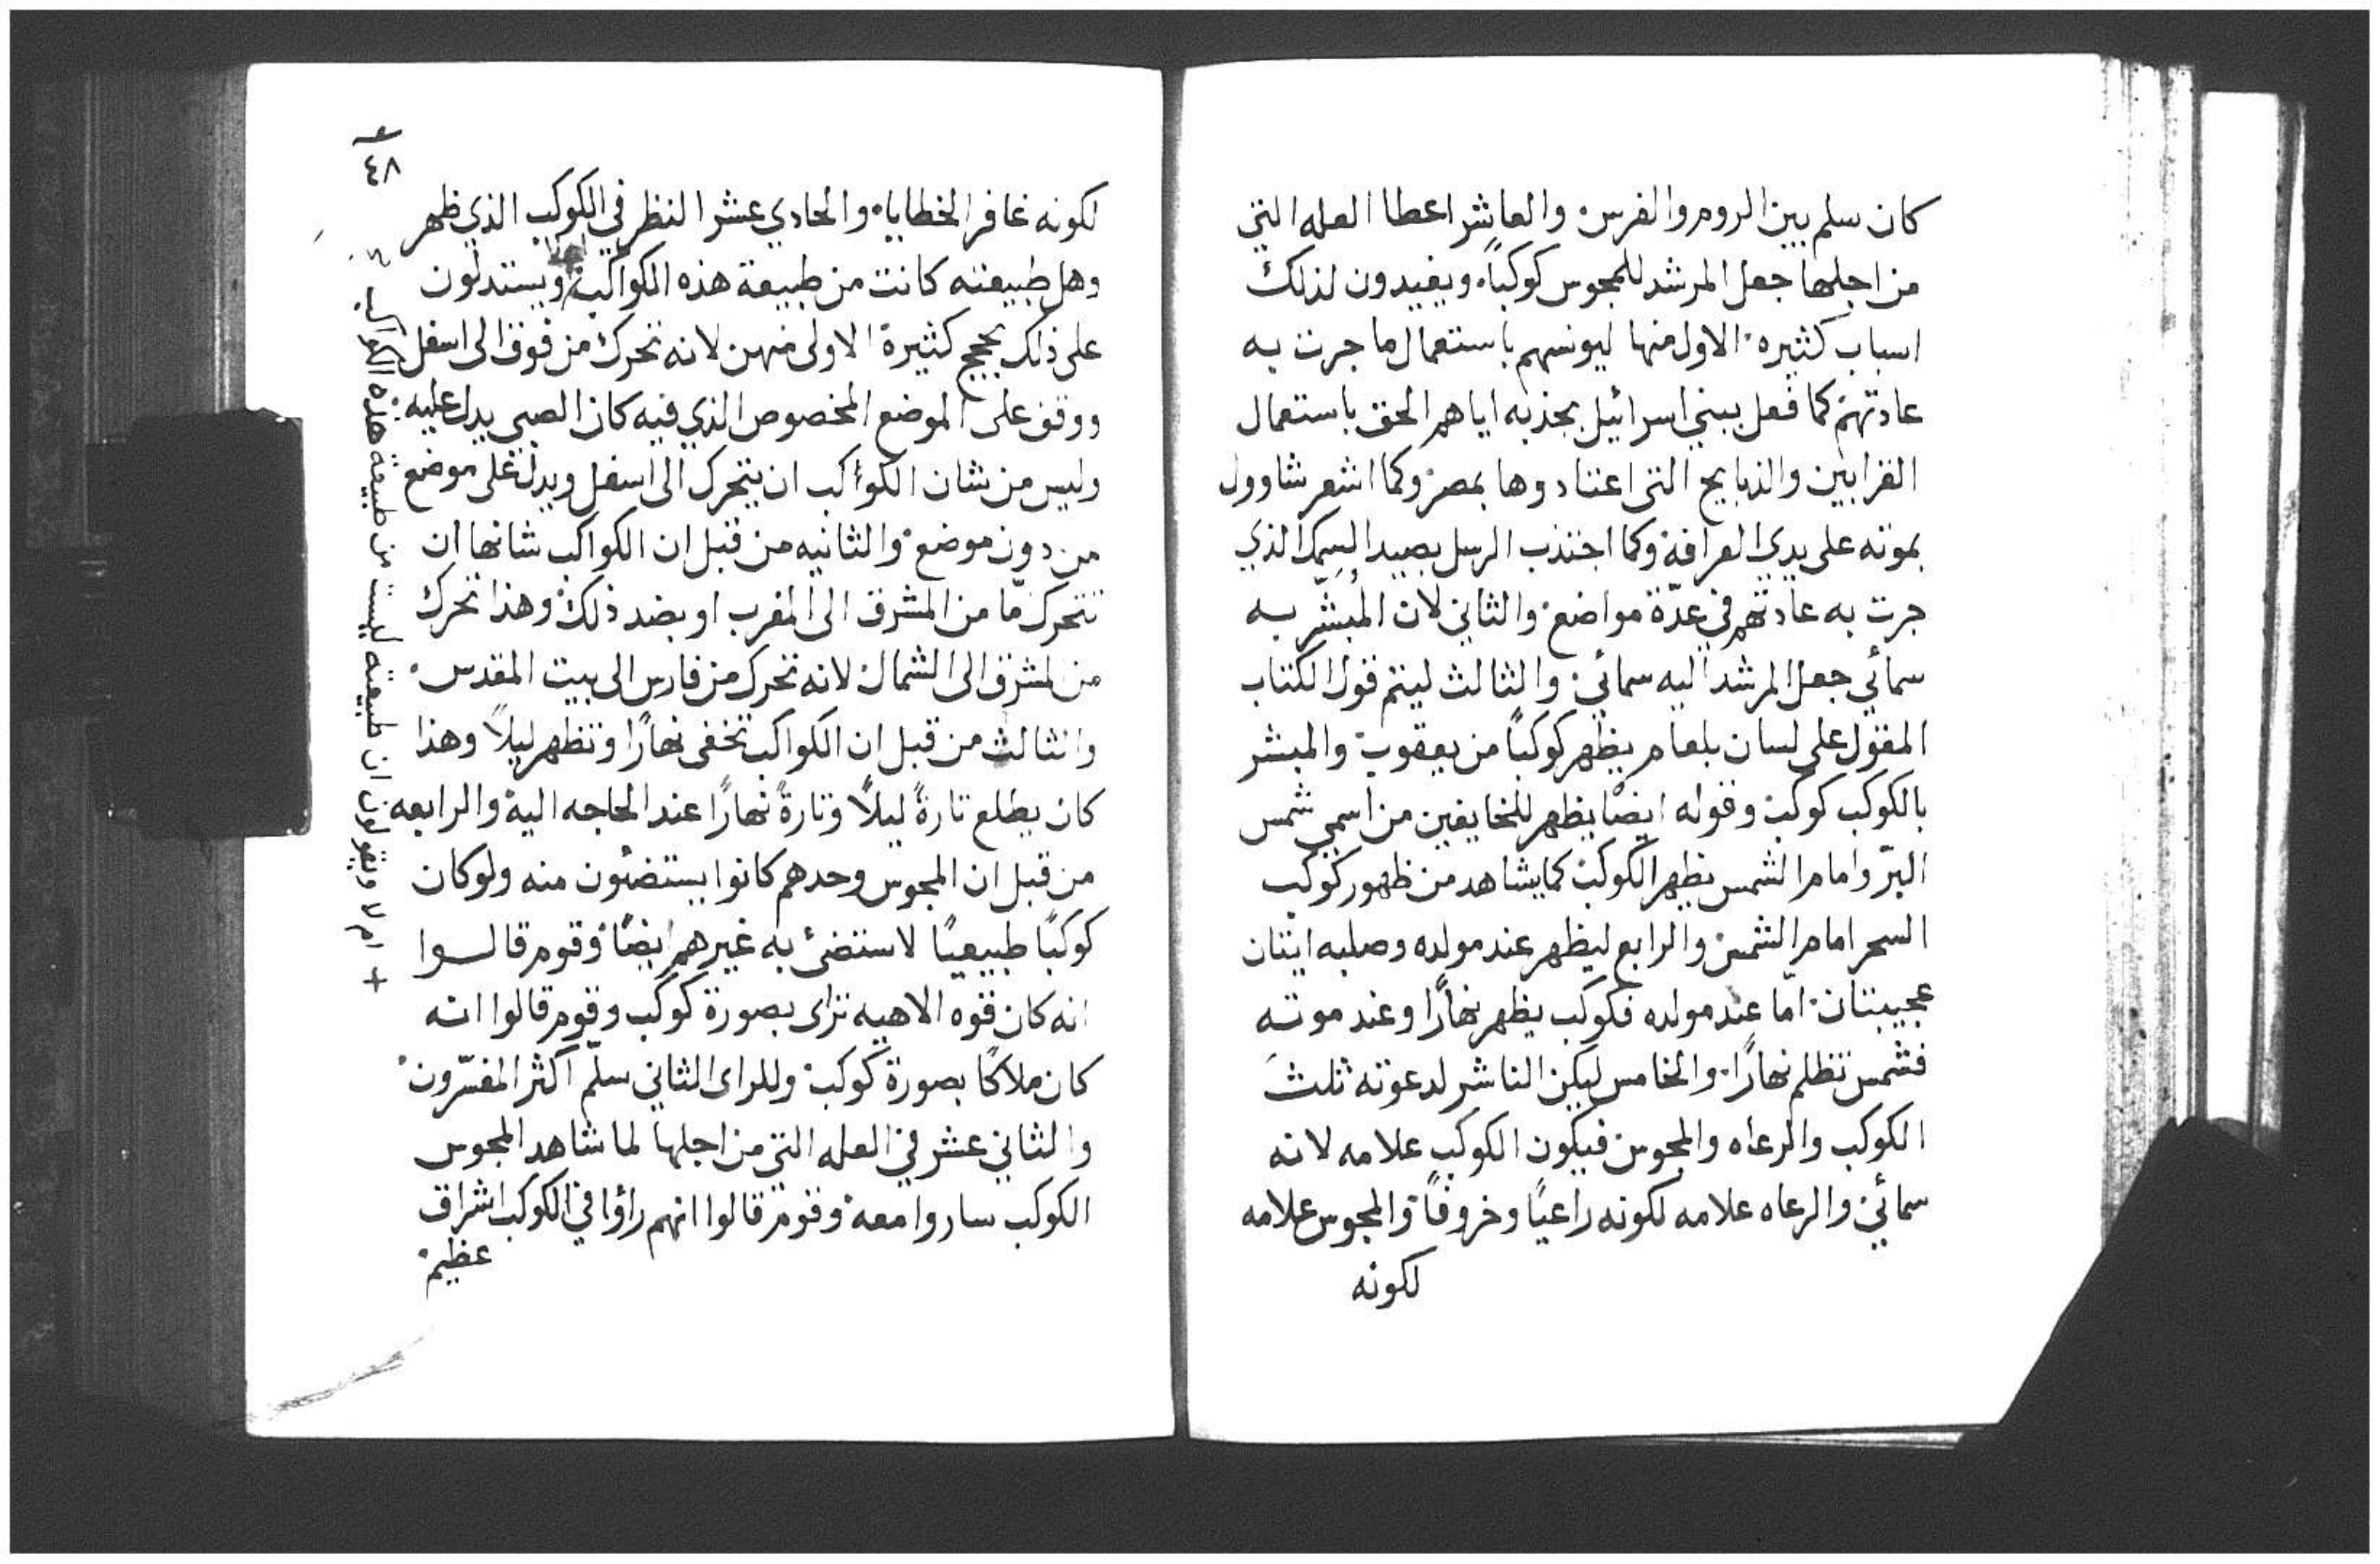 كان سلم بين الروم والفرس والعاشر اعطا العله التي
من اجلها جعل المرشد للمجوس كوكباً ويفيدون لذلك
اسباب كثيره الاول منها ليونسهم باستعمال ما جرت به
عادتهم كما فعل ببني اسرائيل بجذبه اياهم الحق باستعمال
القرابين والذبايح التي اعتادوها بمصر وكما اشعر شاوول
بموته على يدي العرافة وكما اجتذب الرسل بصيد السمك الذي
جرت به عادتهم في عدّة مواضع والثاني لان المُبشّر به
سمائي جعل المرشد اليه سمائي والثالث ليتم قول الكتاب
المقول على لسان بلعام يظهر كوكباً من يعقوب والمبشر
بالكوكب كوكب وقوله ايضًا يظهر للخايفين من اسمي شمس
البرّ وامام الشمس يظهر الكوكب كما يشاهد من ظهور كوكب
السحر امام الشمس والرابع ليظهر عند مولده وصلبه ايتان
عجيبتان امّا عند مولده فكوكب يظهر نهارًا وعند موته
فشمس تظلم نهارًا والخامس ليكن الناشر لدعوته ثلث
الكوكب والرعاه والمجوس فيكون الكوكب علامه لانه
سمائي والرعاه علامه لكونه راعيًا وخروفاً والمجوس علامه
لكونه
٤٨
لكونه غافر الخطايا والحادي عشر النظر في الكوكب الذي ظهر
وهل طبيعته كانت من طبيعة هذه الكواكب ويستدلون
على ذلك بحجج كثيرة الاولى منهن لانه تحرك من فوق الى اسفل
ووقف على الموضع المخصوص الذي فيه كان الصبي يدل عليه
وليس من شان الكواكب ان يتحرك الى اسفل ويدل على موضع
من دون موضع والثانيه من قبل ان الكواكب شانها ان
تتحرك امّا من المشرق الى المغرب او بضد ذلك وهذا تحرك
من لمشرق الى الشمال لانه تحرك من فارس الى بيت المقدس
والثالث من قبل ان الكواكب تخفى نهارًا وتظهر ليلاً وهذا
كان يطلع تارةً ليلاً وتارةً نهارًا عند الحاجه اليه والرابعه
من قبل ان المجوس وحدهم كانوا يستضئون منه ولو كان
كوكبًا طبيعيًا لاستضئ به غيرهم ايضًا وقوم قالوا
انه كان قوه الاهيه تراى بصورة كوكب وقوم قالوا انه
كان ملاكًا بصورة كوكب وللراى الثاني سلّم اكثر المفسّرون
والثاني عشر في العله التي من اجلها لما شاهد المجوس
الكوكب ساروا معه وقوم قالوا انهم راؤا في الكوكب اشراق
عظيم
+ ام لا ويقولون ان طبيعته ليست من طبيعة هذه الكواكب